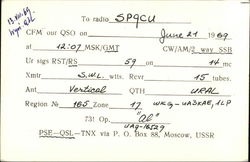 To radio SP9CU
CFM our QSO on June 21 1969
at 12:07 MSK/GMT CW/AM/2 way SSB
Ur sigs RST/RS 59 on 14 mc
Xmtr S.W.L. wtts. Rcvr 15 tubes.
Ant Vertical QTH URAL
Region № 165 Zone 17 WKG - UA3KAE, 1LP
73! Op. "Al"
UA9-16529
PSE—QSL—TNX via P. O. Box 88, Moscow, USSR